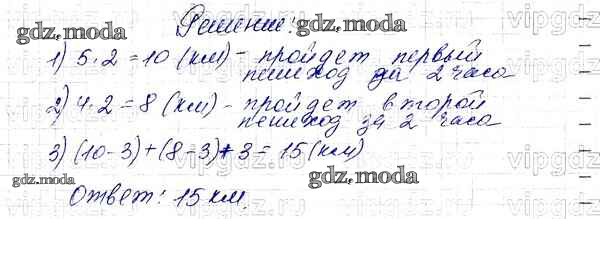 Решение:
1) 5·2=10 (км) – пройдет первый
пешеход за 2 часа
2) 4·2=8 (км) – пройдет второй
пешеход за 2 часа
3) (10-3)+(8-3)+3=15(км)
Ответ: 15 км.
gdz.moda
gdz.moda
gdz.moda
gdz.moda
vipgdz.ru